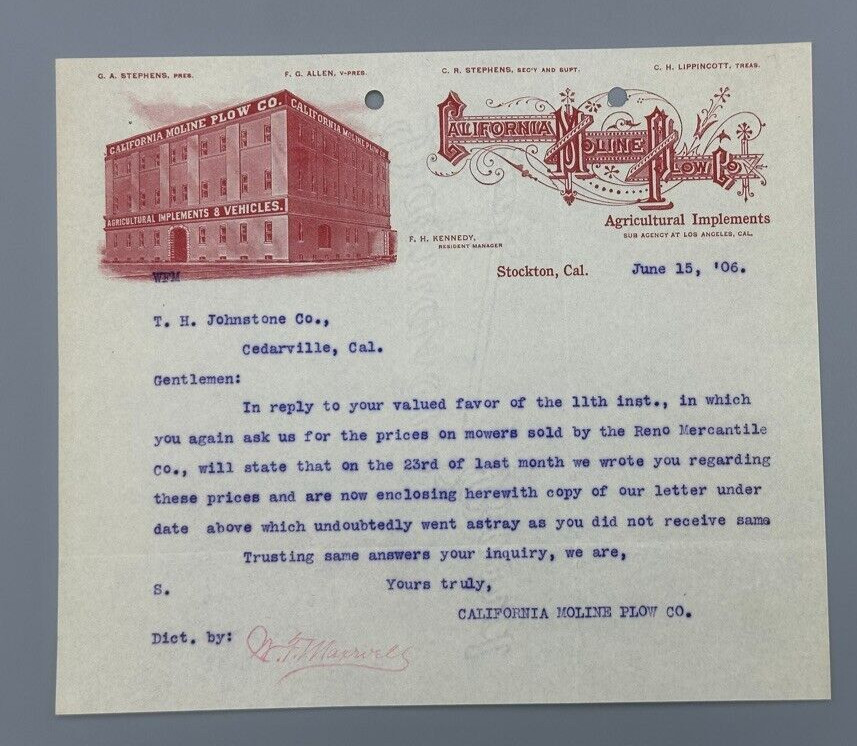 G. A. STEPHENS, PRES.
F. G. ALLEN, V-PRES.
C. R. STEPHENS, SEC'Y AND SUPT.
C. H. LIPPINCOTT, TREAS.
CALIFORNIA MOLINE PLOW CO.
CALIFORNIA MOLINE PLOW
AGRICULTURAL IMPLEMENTS & VEHICLES.
CALIFORNIA MOLINE PLOW CO
Agricultural Implements
SUB AGENCY AT LOS ANGELES, CAL.
F. H. KENNEDY,
RESIDENT MANAGER
Stockton, Cal. June 15, '06.
WFM
T. H. Johnstone Co.,
Cedarville, Cal.
Gentlemen:
In reply to your valued favor of the 11th inst., in which
you again ask us for the prices on mowers sold by the Reno Mercantile
Co., will state that on the 23rd of last month we wrote you regarding
these prices and are now enclosing herewith copy of our letter under
date above which undoubtedly went astray as you did not receive same
Trusting same answers your inquiry, we are,
S. Yours truly,
CALIFORNIA MOLINE PLOW CO.
Dict. by: W. F. Maxwell